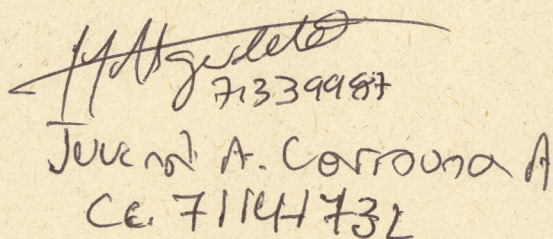 71339987
Juvenal A. Carmona A
CC. 71141732